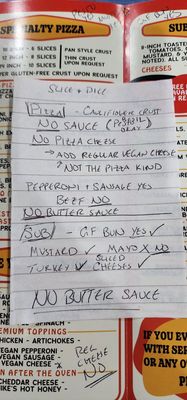 SPECIALTY PIZZA
10 INCH - 6 SLICES
12 INCH - 8 SLICES
INCH - 10 SLICES
PAN STYLE CRUST
THIN CRUST
UPON REQUEST
GLUTEN-FREE CRUST UPON REQUEST
SUB
8-INCH TOASTED
TOMATOES,
MUSTARD,
NOTED
CHEESES
SLICE + DICE
PIZZA - CAULIFLOWER CRUST
NO SAUCE (
OKAY)
NO PIZZA CHEESE
→ ADD REGULAR VEGAN CHEESE
NOT THE PIZZA KIND
PEPPERONI + SAUSAGE YES
BEEF NO
NO BUTTER SAUCE
SUB - GF BUN YES ✓
MUSTARD ✓ MAYO X NO
TURKEY ✓ SLICED CHEESES ✓
NO BUTTER SAUCE
SPINACH -
PREMIUM TOPPINGS
CHICKEN - ARTICHOKES -
VEGAN PEPPERONI -
VEGAN SAUSAGE
VEGAN CHEESE
AFTER THE OVEN
CHEDDAR CHEESE -
MIKE'S HOT HONEY -
REG
CHEESE
NO
IF YOU EV
WITH SER
OR ANY O